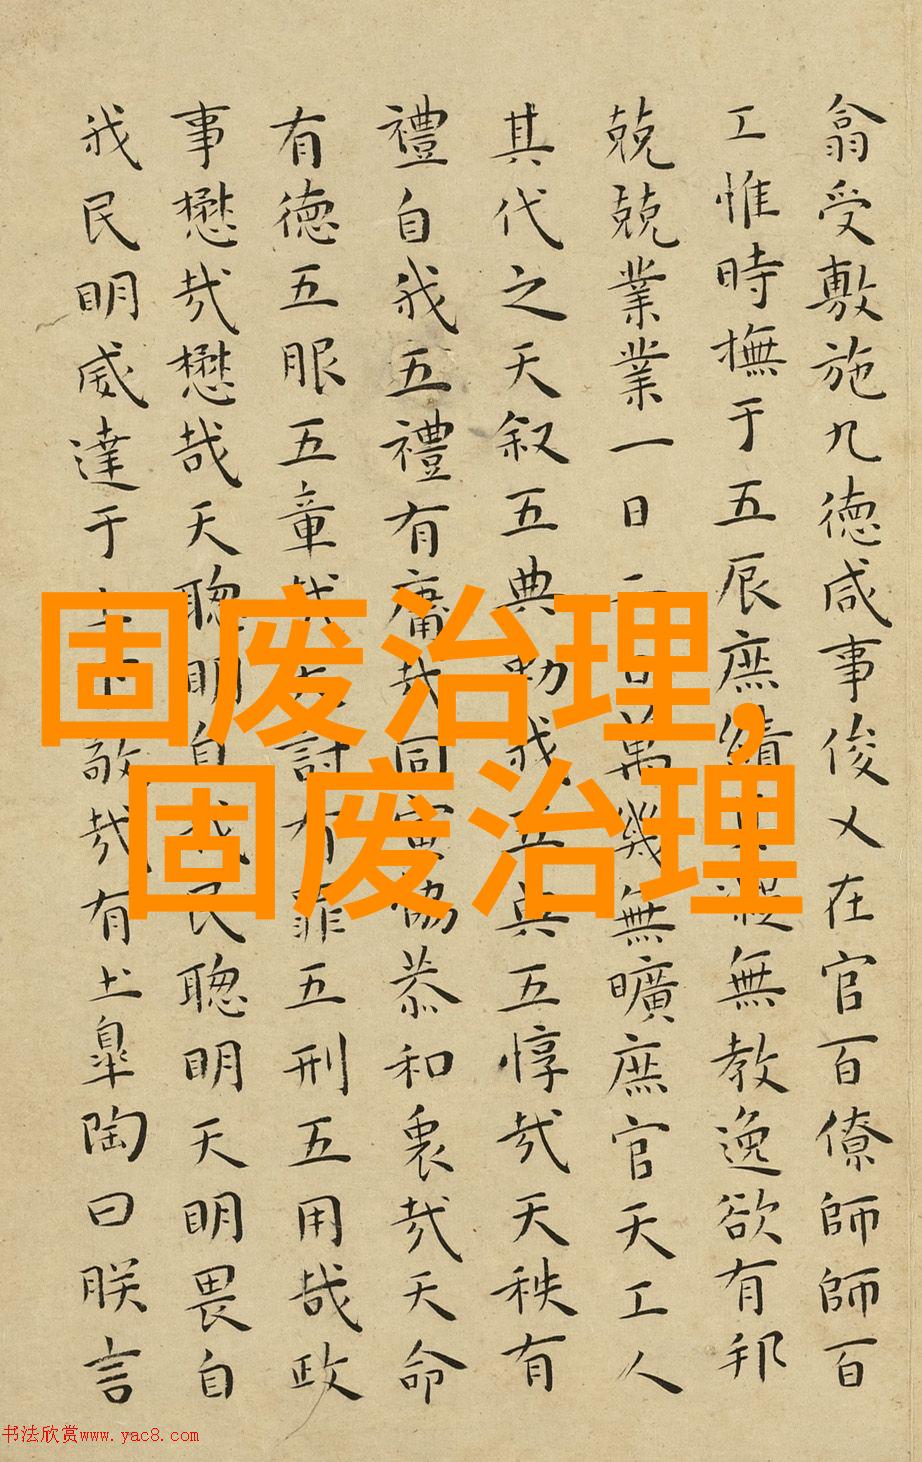 翕受敷施九德咸事俊乂在官百僚師師百
工惟時撫于五辰庶績凝無教逸欲有邦
兢兢業業一日二日萬幾無曠庶官天工人
其代之天叙五典勑我五典五惇哉天秩有
禮自我五禮有庸哉同寅協恭和衷哉天命
有德五服五章哉天討有罪五刑五用哉政
事懋哉懋哉天聰明自我民聰明天明畏自
我民明威達于上下敬哉有土皋陶曰朕言
固废治理,
固废治理
书法欣赏www.yac8.com